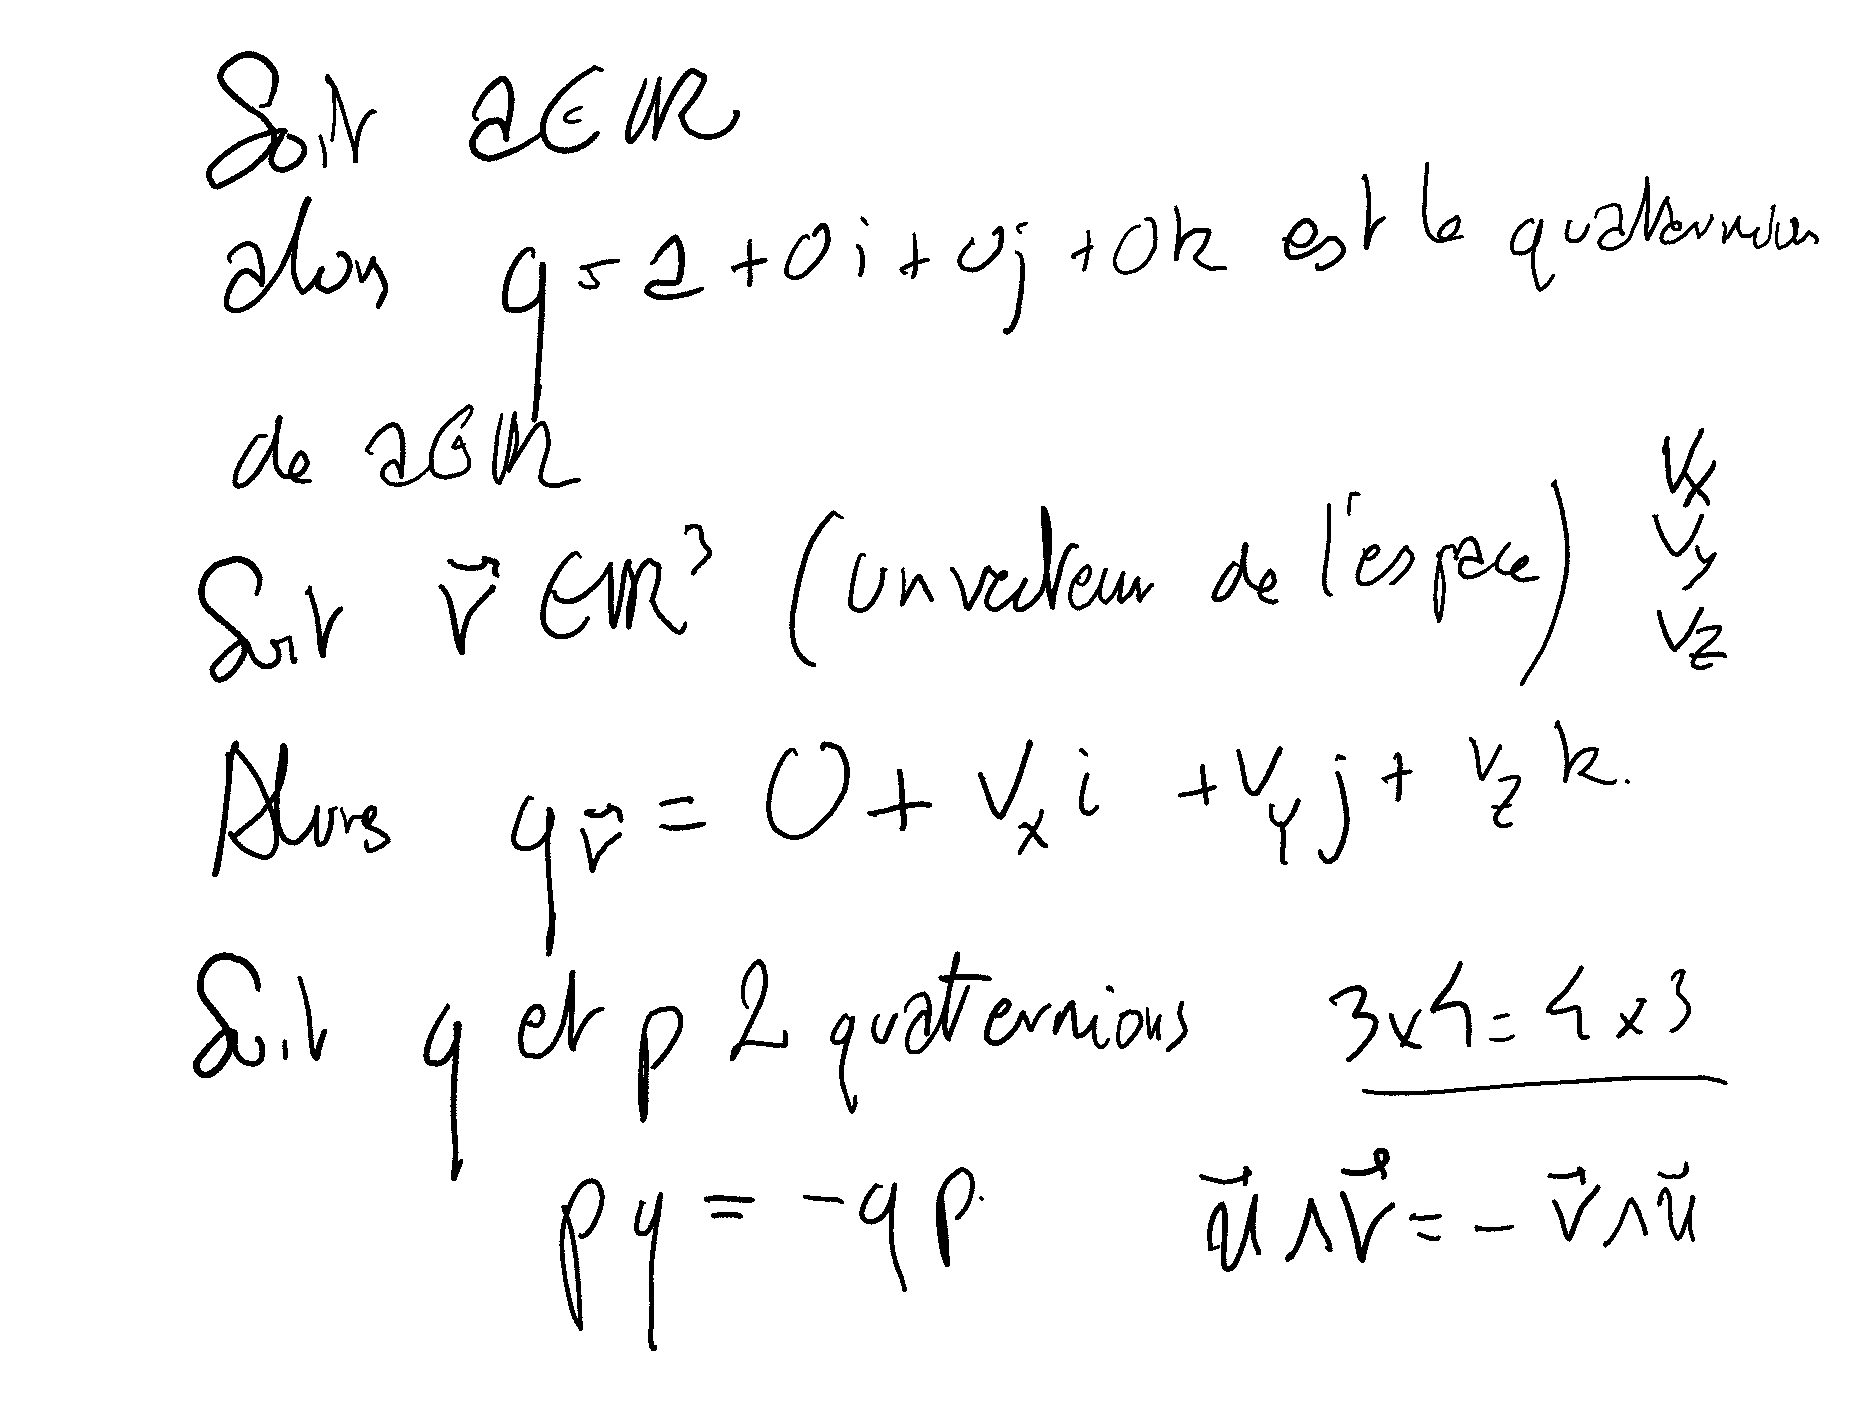 Soit a∈ℝ
alors q = a + 0i + 0j + 0k est le quaternion
de a∈ℝ
Soit v⃗ ∈ℝ³ (un vecteur de l'espace) Vx
Vy
Vz
Alors q_v⃗ = 0 + Vx i + Vy j + Vz k.
Soit q et p 2 quaternions 3x4 = 4x3
pq = -qp. u⃗ ∧ v⃗ = - v⃗ ∧ u⃗